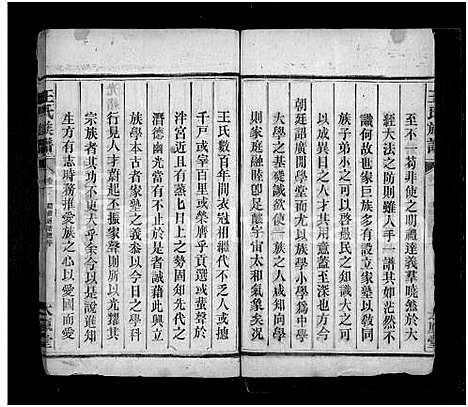 王氏族譜
至不一茍非使之明禮達義羣曉然於大
經大法之防則雖人手一譜其如茫然不
識何故世家巨族多有設立家塾以敎同
族子弟小之可以啓愚民之知識大之可
以成異日之人才其用意蓋至深也方今
朝廷詔廣開學堂而尤以族學小學爲中學
大學之基礎誠欲使一族之人咸知向學
則家庭融睦卽乖離字宙太和氣象矣況
王氏數百年間衣冠相繼代不乏人或摠
千戸或宰百里或榮膺乎貢選或蜚聲於
泮宮近且有蒸七日上之勢固知先代之
濳德幽光當有不止於是者誠藉此興立
族學本古者家塾之義叅以今日之學科
行見人才蔚起丕振家聲則所以光耀其
宗族者其功不更大乎余今以是說進知
生方有志時務推愛族之心以愛國而愛
王氏族譜